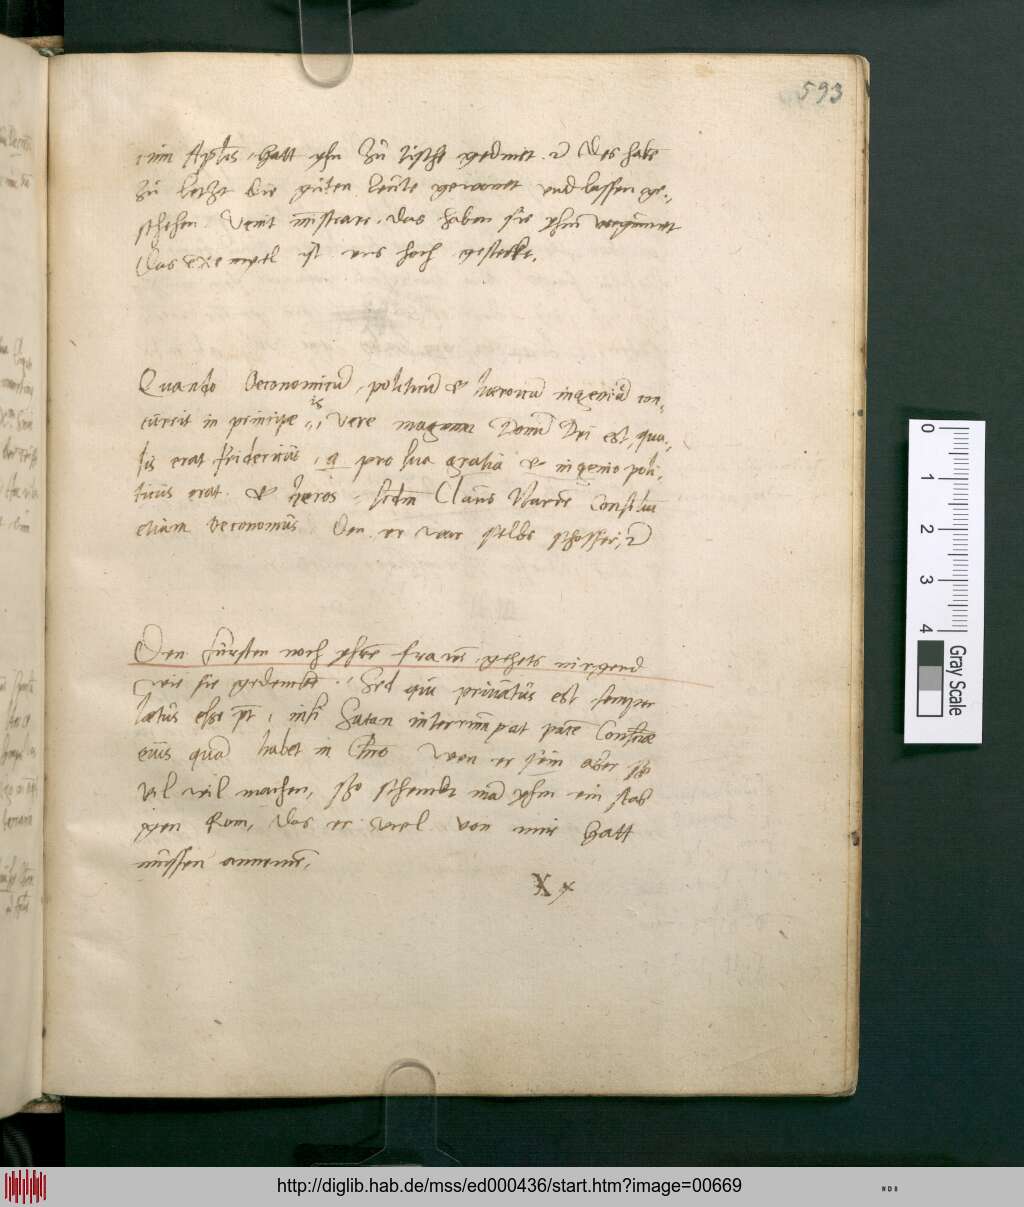 593
cum Aplis, hatt yhn zu tische gedinet. Des habe
zu letzt die guten leute gewonet und lassen ge-
schehen. Venit ministrare. das haben sie yhm vergunnet
Das exempel ist uns hoch gesteckt.
Quando Oeconomicu, politicu & heroicu ingeniu con-
currit in principe is, vere magnum Donu Dei est, qua-
lis erat Fridericus, q pro sua gratia & ingenio poli-
ticus erat & heros, scdm Claus Narren Consiliu
etiam Oeconomus Den er war selbs schosser,
Den Fursten noch yhre frawen, gehets nirgend
wie sie gedencken. Sed qui privatus est semper
laetus esse pt, nisi Satan interrumpat pace Conscientiae
eius qua habet in Chro Wen er sein aber so
vil wil machen, so schenckt ma yhm ein stab
gen Rom, das er viel von mir hatt
mussen annemen.
X x
0 1 2 3 4
Gray Scale
http://diglib.hab.de/mss/ed000436/start.htm?image=00669